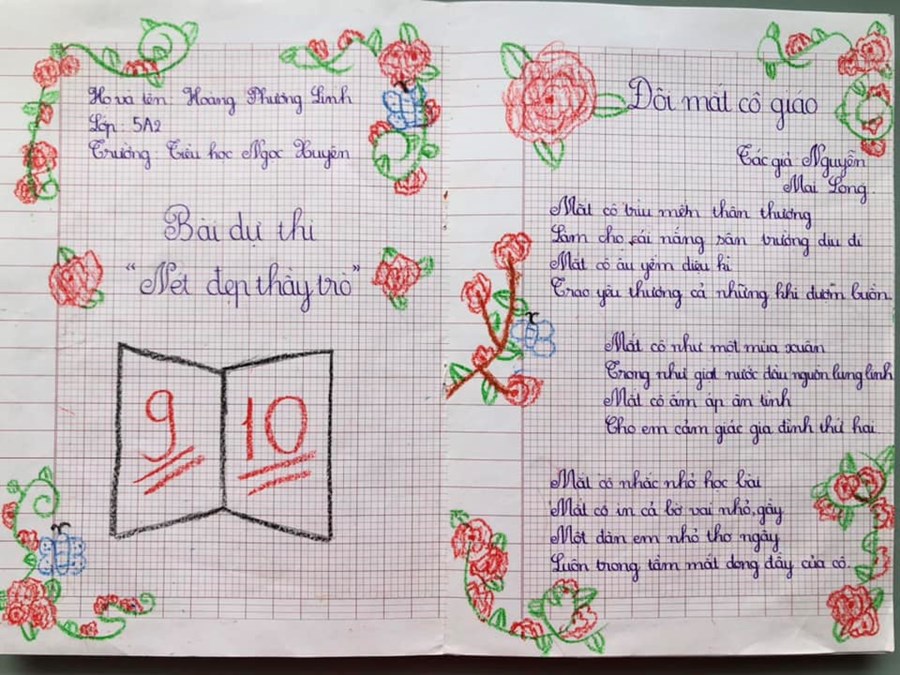 Họ và tên: Hoàng Phương Linh
Lớp: 5A2
Trường: Tiểu học Ngọc Xuyên
Bài dự thi
"Nét đẹp thầy trò"
9 10
Đôi mắt cô giáo
Tác giả Nguyễn
Mai Long
Mắt cô trìu mến thân thương
Làm cho cái nắng sân trường dịu đi
Mắt cô âu yếm diệu kì
Trao yêu thương cả những khi đượm buồn.
Mắt cô như một mùa xuân
Trong như giọt nước đầu nguồn lung linh
Mắt cô ấm áp ân tình
Cho em cảm giác gia đình thứ hai
Mắt cô nhắc nhở học bài
Mắt cô in cả bờ vai nhỏ, gầy
Một đàn em nhỏ thơ ngây
Luôn trong tầm mắt dong đầy của cô.